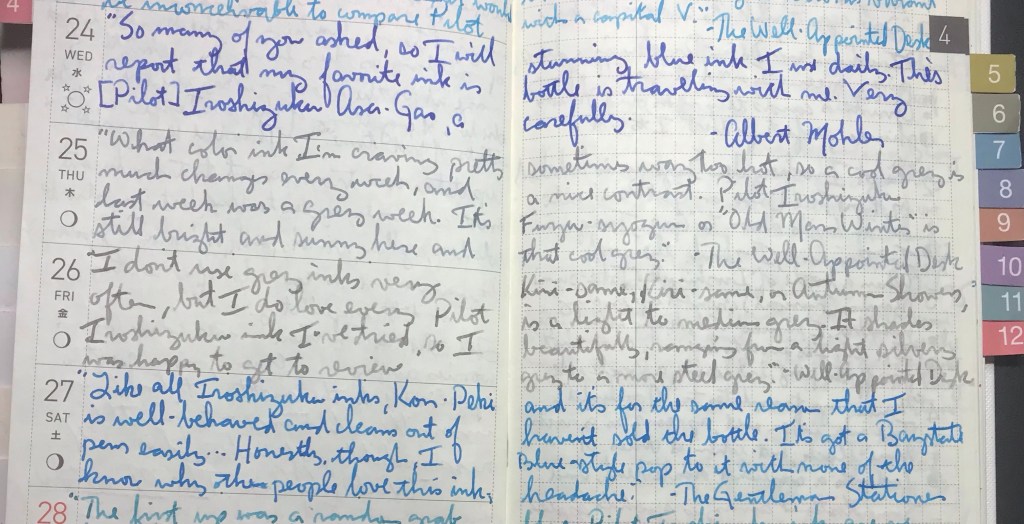 it inconceivable to compare Pilot
24
WED
水
"So many of you asked, so I will
report that my favorite ink is
[Pilot] Iroshizuku Asa-Gao, a
25
THU
木
"What color ink I'm craving pretty
much changes every week, and
last week was a grey week. It's
still bright and sunny here and
26
FRI
金
"I don't use grey inks very
often, but I do love every Pilot
Iroshizuku ink I've tried, so I
was happy to get to review
27
SAT
土
"Like all Iroshizuku inks, Kon-Peki
is well-behaved and cleans out of
pens easily... Honestly, though, I
know why the people love this ink,
28
"The first up was a random grab
with a capital V." -The Well-Appointed Desk
stunning blue ink I use daily. This
bottle is traveling with me. Very
carefully. -Albert Mohler
sometimes way too hot, so a cool grey is
a nice contrast. Pilot Iroshizuku
Fuyu-syogun or "Old Man Winter" is
that cool grey." -The Well-Appointed Desk
Kiri-same, Kiri-same, or Autumn Showers,
is a light to medium grey. It shades
beautifully, ranging from a light silvery
grey to a more steel grey." -Well-Appointed Desk
and it's for the same reason that I
haven't sold the bottle. It's got a Baystate
Blue-style pop to it with none of the
headache." -The Gentleman Stationer
4
4
5
6
7
8
9
10
11
12